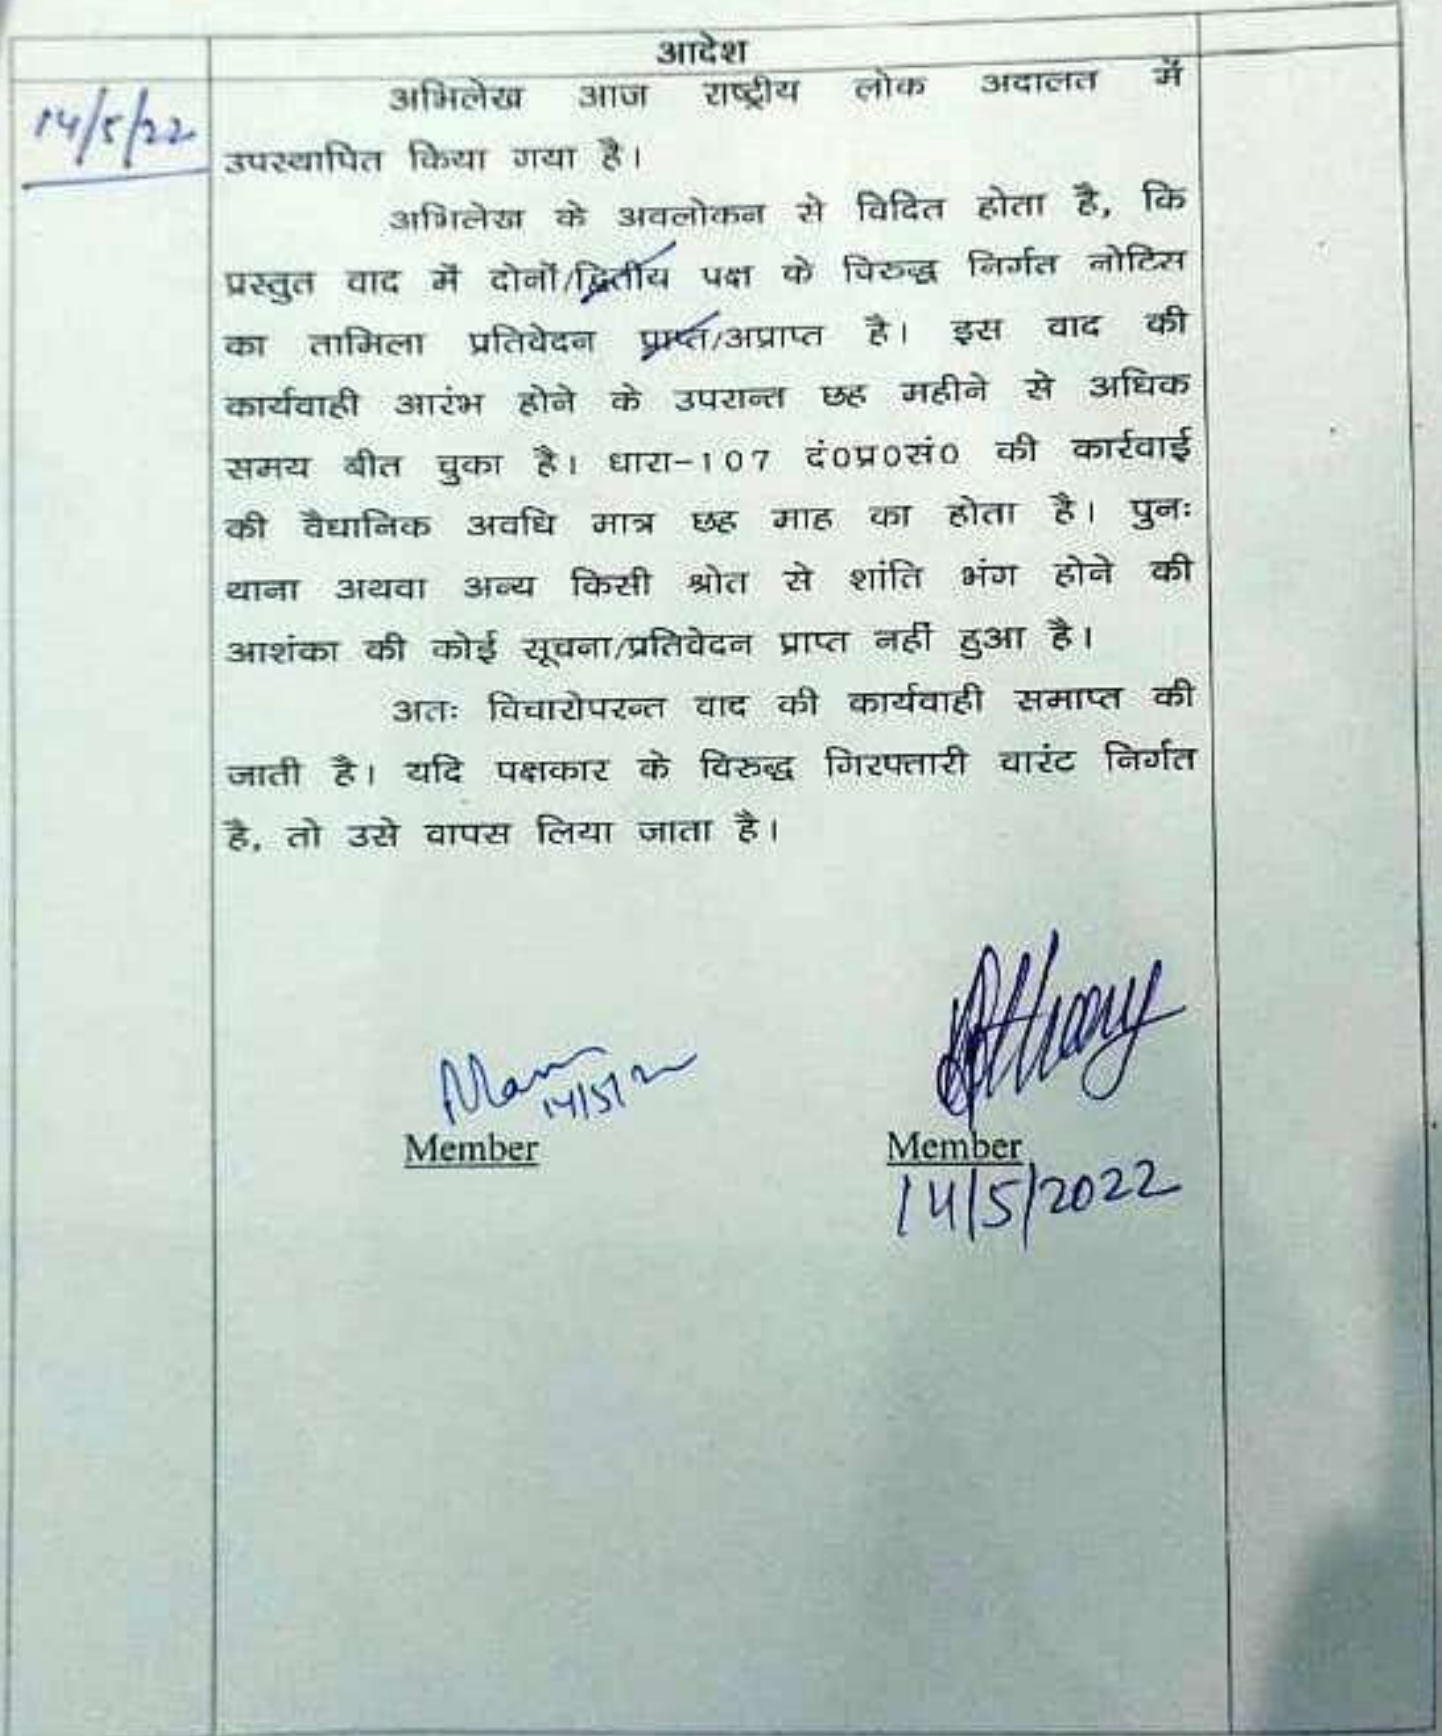 आदेश
14/5/22
अभिलेख आज राष्ट्रीय लोक अदालत में
उपस्थापित किया गया है।
अभिलेख के अवलोकन से विदित होता है, कि
प्रस्तुत वाद में दोनों/द्वितीय पक्ष के विरुद्ध निर्गत नोटिस
का तामिला प्रतिवेदन प्राप्त/अप्राप्त है। इस वाद की
कार्यवाही आरंभ होने के उपरान्त छह महीने से अधिक
समय बीत चुका है। धारा-107 दं०प्र०सं० की कार्रवाई
की वैधानिक अवधि मात्र छह माह का होता है। पुनः
थाना अथवा अन्य किसी श्रोत से शांति भंग होने की
आशंका की कोई सूचना/प्रतिवेदन प्राप्त नहीं हुआ है।
अतः विचारोपरन्त वाद की कार्यवाही समाप्त की
जाती है। यदि पक्षकार के विरुद्ध गिरफ्तारी वारंट निर्गत
है, तो उसे वापस लिया जाता है।
14/5/22
Member Member
14/5/2022